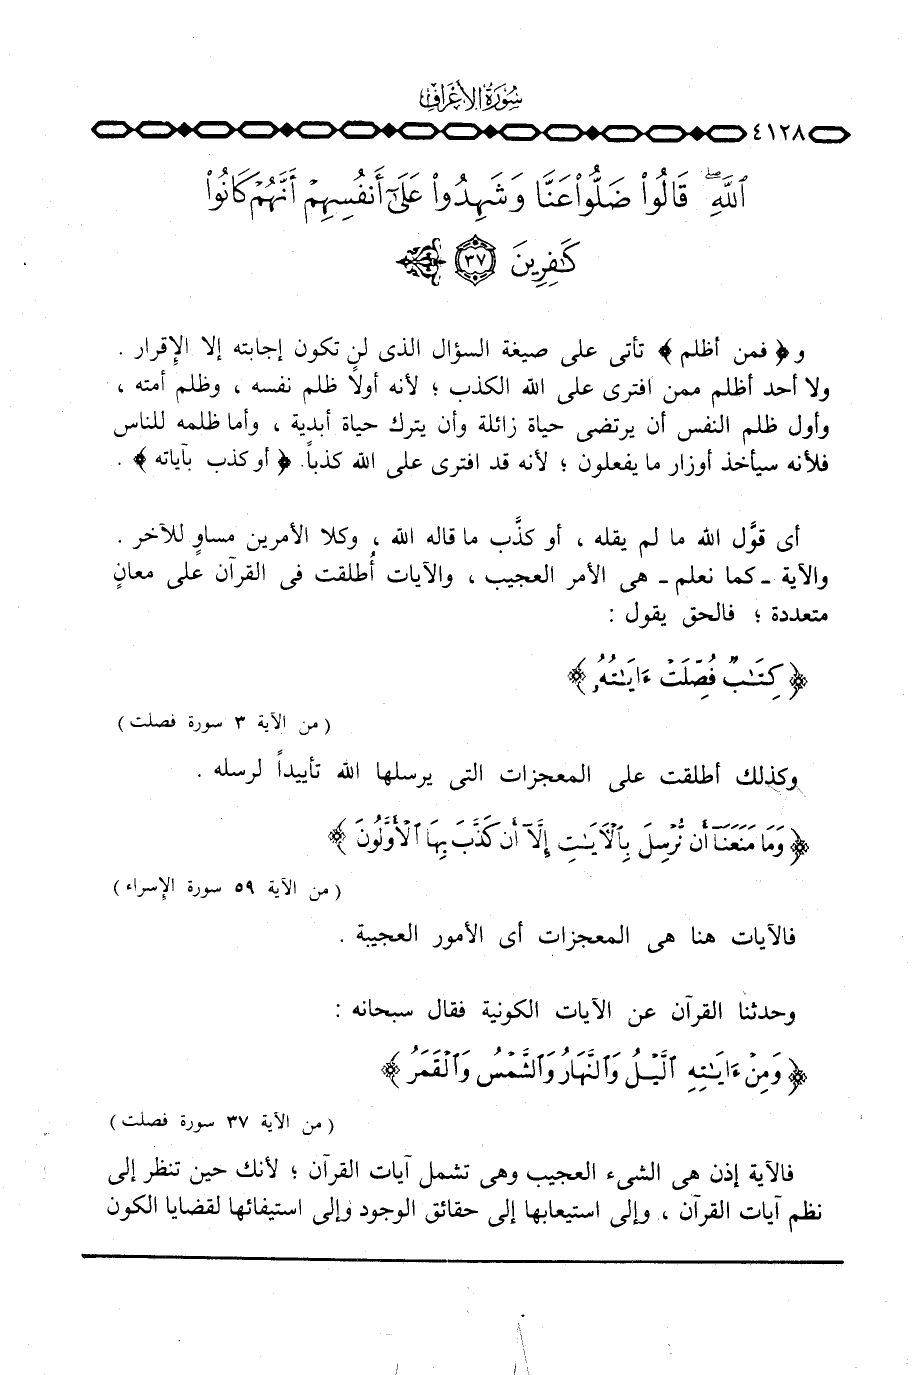 سُورَةُ الأَعْرَافِ
٤١٢٨
ٱللَّهِ ۖ قَالُوا۟ ضَلُّوا۟ عَنَّا وَشَهِدُوا۟ عَلَىٰٓ أَنفُسِهِمْ أَنَّهُمْ كَانُوا۟
كَٰفِرِينَ ٣٧
و ﴿ فمن أظلم ﴾ تأتى على صيغة السؤال الذى لن تكون إجابته إلا الإقرار .
ولا أحد أظلم ممن افترى على الله الكذب ؛ لأنه أولاً ظلم نفسه ، وظلم أمته ،
وأول ظلم النفس أن يرتضى حياة زائلة وأن يترك حياة أبدية ، وأما ظلمه للناس
فلأنه سيأخذ أوزار ما يفعلون ؛ لأنه قد افترى على الله كذباً. ﴿ أو كذب بآياته ﴾ .
أى قوَّل الله ما لم يقله ، أو كذَّب ما قاله الله ، وكلا الأمرين مساوٍ للآخر .
والآية ـ كما نعلم ـ هى الأمر العجيب ، والآيات أُطلقت فى القرآن على معانٍ
متعددة ؛ فالحق يقول :
﴿ كِتَٰبٌ فُصِّلَتْ ءَايَٰتُهُۥ ﴾
( من الآية ٣ سورة فصلت )
وكذلك أطلقت على المعجزات التى يرسلها الله تأييداً لرسله .
﴿ وَمَا مَنَعَنَآ أَن نُّرْسِلَ بِٱلْءَايَٰتِ إِلَّآ أَن كَذَّبَ بِهَا ٱلْأَوَّلُونَ ﴾
( من الآية ٥٩ سورة الإسراء )
فالآيات هنا هى المعجزات أى الأمور العجيبة .
وحدثنا القرآن عن الآيات الكونية فقال سبحانه :
﴿ وَمِنْ ءَايَٰتِهِ ٱلَّيْلُ وَٱلنَّهَارُ وَٱلشَّمْسُ وَٱلْقَمَرُ ﴾
( من الآية ٣٧ سورة فصلت )
فالآية إذن هى الشىء العجيب وهى تشمل آيات القرآن ؛ لأنك حين تنظر إلى
نظم آيات القرآن ، وإلى استيعابها إلى حقائق الوجود وإلى استيفائها لقضايا الكون